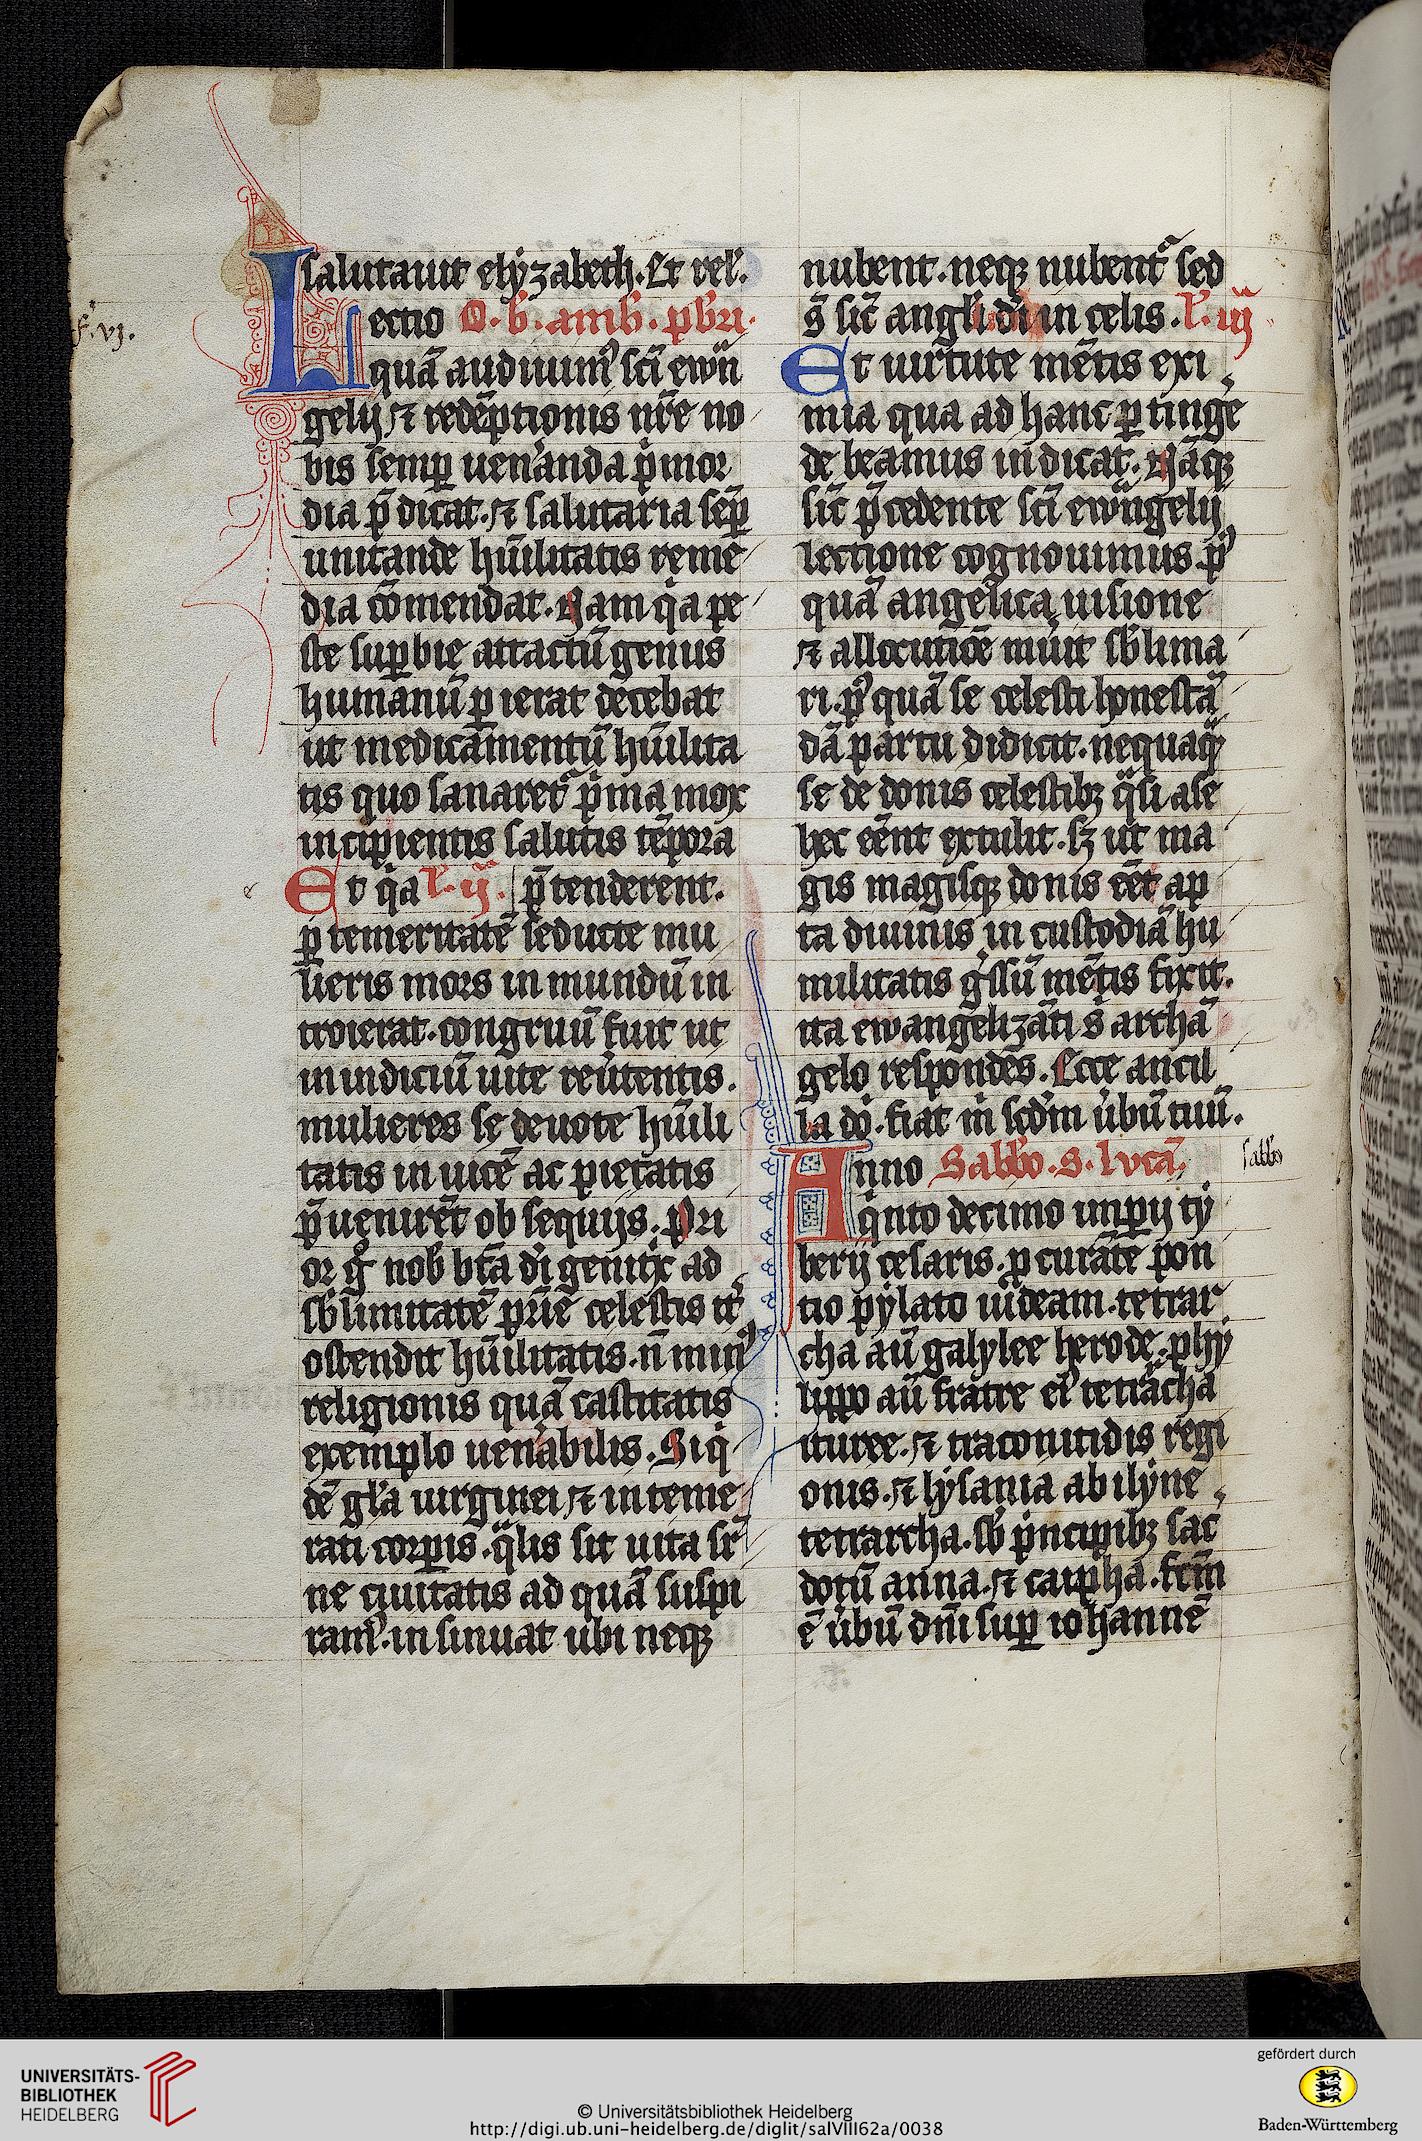 f. vj.
salutauit elyzabeth. Et rel'.
Lectio O. b. amb. pbri.
quā audiuim9 scī ewn̄
gelij ⁊ redēptionis nr̄e no
bis semꝑ uen'anda p'mor
dia p̄dicat. ⁊ salutaria sēꝑ
imitande hūilitatis reme
dia cōmendat. Nam q'a pe
ste suꝑbie attactū genus
humanū ꝑierat decebat
ut medicamentū hūilita
tis quo sanaret' p'ma mox
incipientis salutis tēpora
Et q'a l'. ij. p̄tenderent.
ꝑ temeritatē seducte mu
lieris mors in mundū in
troierat. congruū fuit ut
in indiciū uite reu'tentis.
mulieres se deuote hūili
tatis inuicē ac pietatis
p̄uenirēt obsequijs. Pri
or g° nob' bt̄a di' genit'x ad
sb'limitatē pr̄ie celestis it'
ostendit hūilitatis. n̄ min9
religionis quā castitatis
exemplo uen'abilis. Siq'
dē gl'a uirginei ⁊ inteme
rati corꝑis. q̄lis sit uita sr̄
ne ciuitatis ad quā suspi
ram9. insinuat ubi neqꝫ
nubent. neqꝫ nubent' sed
s̄ sic̄ angl'i di' in celis. l'. iij
Et uirtute mētis exi
mia qua ad hanc ꝑtinge
de beamus indicat. Nāqꝫ
sic̄ p̄cedente scī ewn̄gelij
lectione cognouimus p9
quā angelica uisione
⁊ allocutiōe mu'it sb'lima
ri. p9quā se celesti honestā
dā partu didicit. nequaqꝫ
se de donis celestibꝫ q̄si a se
hec eēnt extulit. sꝫ ut ma
gis magisqꝫ donis eēt ap
ta diuinis in custodiā hu
militatis g'ssū mētis fixit.
ita ewangelizāti s' archā
gelo respondēs. Ecce ancil
la do'. fiat m' scd'm u'bū tuū.
Anno Sabb'o. s. lucā.
sabb'o
q'nto decimo imꝑij ty
berij cesaris. ꝓcurāte pon
tio pylato iudeam. tetrar
cha aū galylee herode. phy
lippo aū fratre ei9 tetrācha
ituree. ⁊ traconitidis regi
onis. ⁊ lysania abilyne
tetrarcha. sb' p'ncipibꝫ sac
dotū anna. ⁊ caipha. fc̄m
ē u'bū dn̄i suꝑ iohannē
UNIVERSITÄTS-
BIBLIOTHEK
HEIDELBERG
© Universitätsbibliothek Heidelberg
http://digi.ub.uni-heidelberg.de/diglit/salVIII62a/0038
gefördert durch
Baden-Württemberg